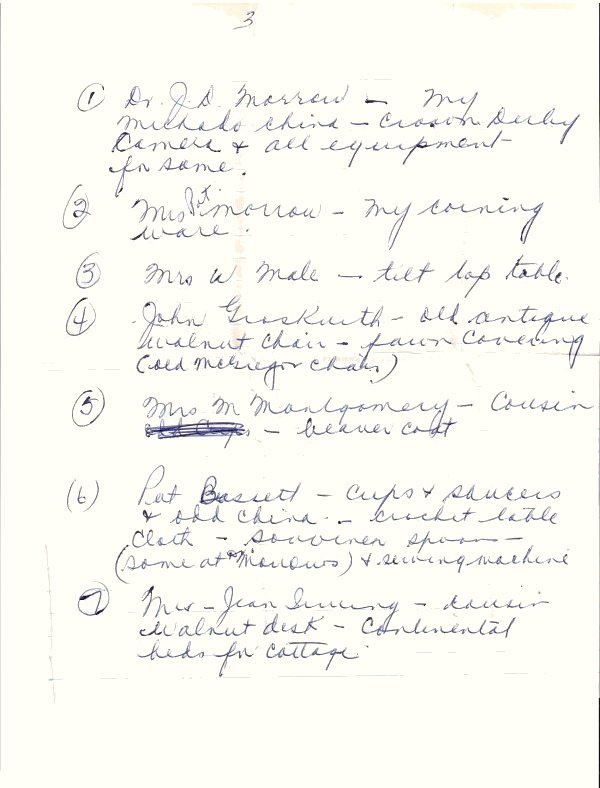 3
① Dr. J. D. Morrow – My
Mickado china – Crown Derby
Camera & all equipment
for same.
② Mrs Pat Morrow – My corning
ware.
③ Mrs W Male – tilt top table.
④ John Groskurth – old antique
walnut chair – fawn covering
(old McGregor chair)
⑤ Mrs M Montgomery – Cousin
– beaver coat
(6) Pat Bassett – cups & saucers
& odd china. – crochet table
cloth – souvenir spoons –
(some at Morrows) & sewing machine
⑦ Mrs – Jean – cousin
walnut desk – Continental
beds for cottage.